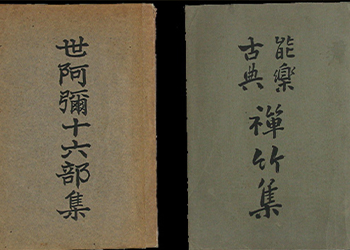 世阿彌十六部集
能樂
古典
禅竹集